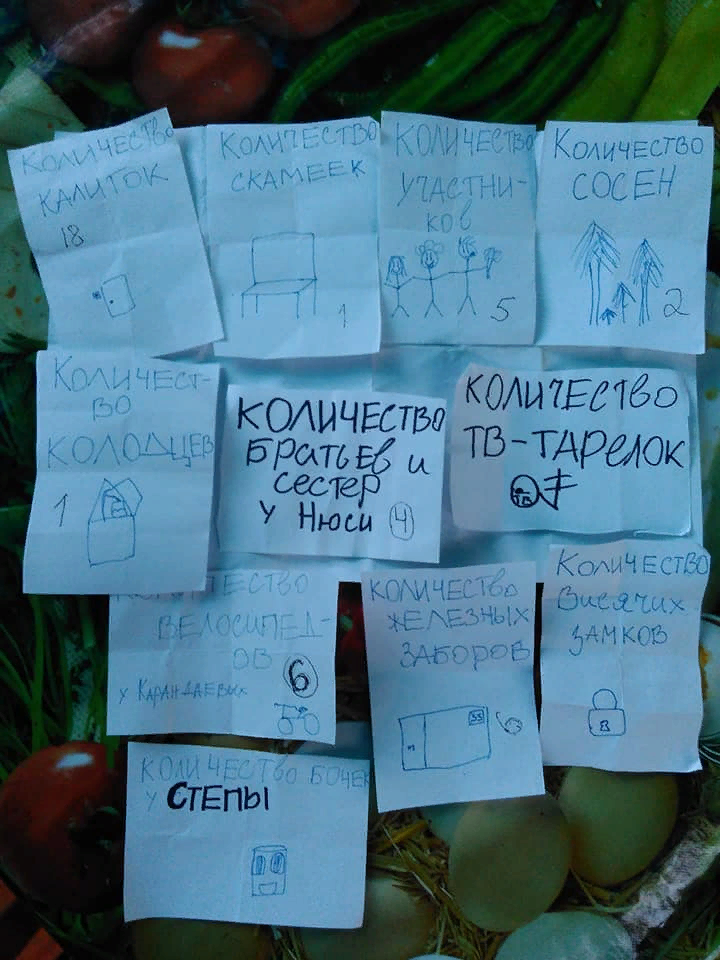 КОЛИЧЕСТВО
КАЛИТОК
18
КОЛИЧЕСТВО
СКАМЕЕК
1
КОЛИЧЕСТВО
УЧАСТНИ-
КОВ
5
КОЛИЧЕСТВО
СОСЕН
2
КОЛИЧЕСТ-
ВО
КОЛОДЦЕВ
1
КОЛИЧЕСТВО
БРАТЬЕВ И
СЕСТЕР
У НЮСИ 4
КОЛИЧЕСТВО
ТВ-ТАРЕЛОК
КОЛИЧЕСТВО
ВЕЛОСИПЕД-
ОВ 6
У КАРАНДАЕВЫХ
КОЛИЧЕСТВО
ЖЕЛЕЗНЫХ
ЗАБОРОВ
КОЛИЧЕСТВО
ВИСЯЧИХ
ЗАМКОВ
В
КОЛИЧЕСТВО БОЧЕК
У СТЕПЫ